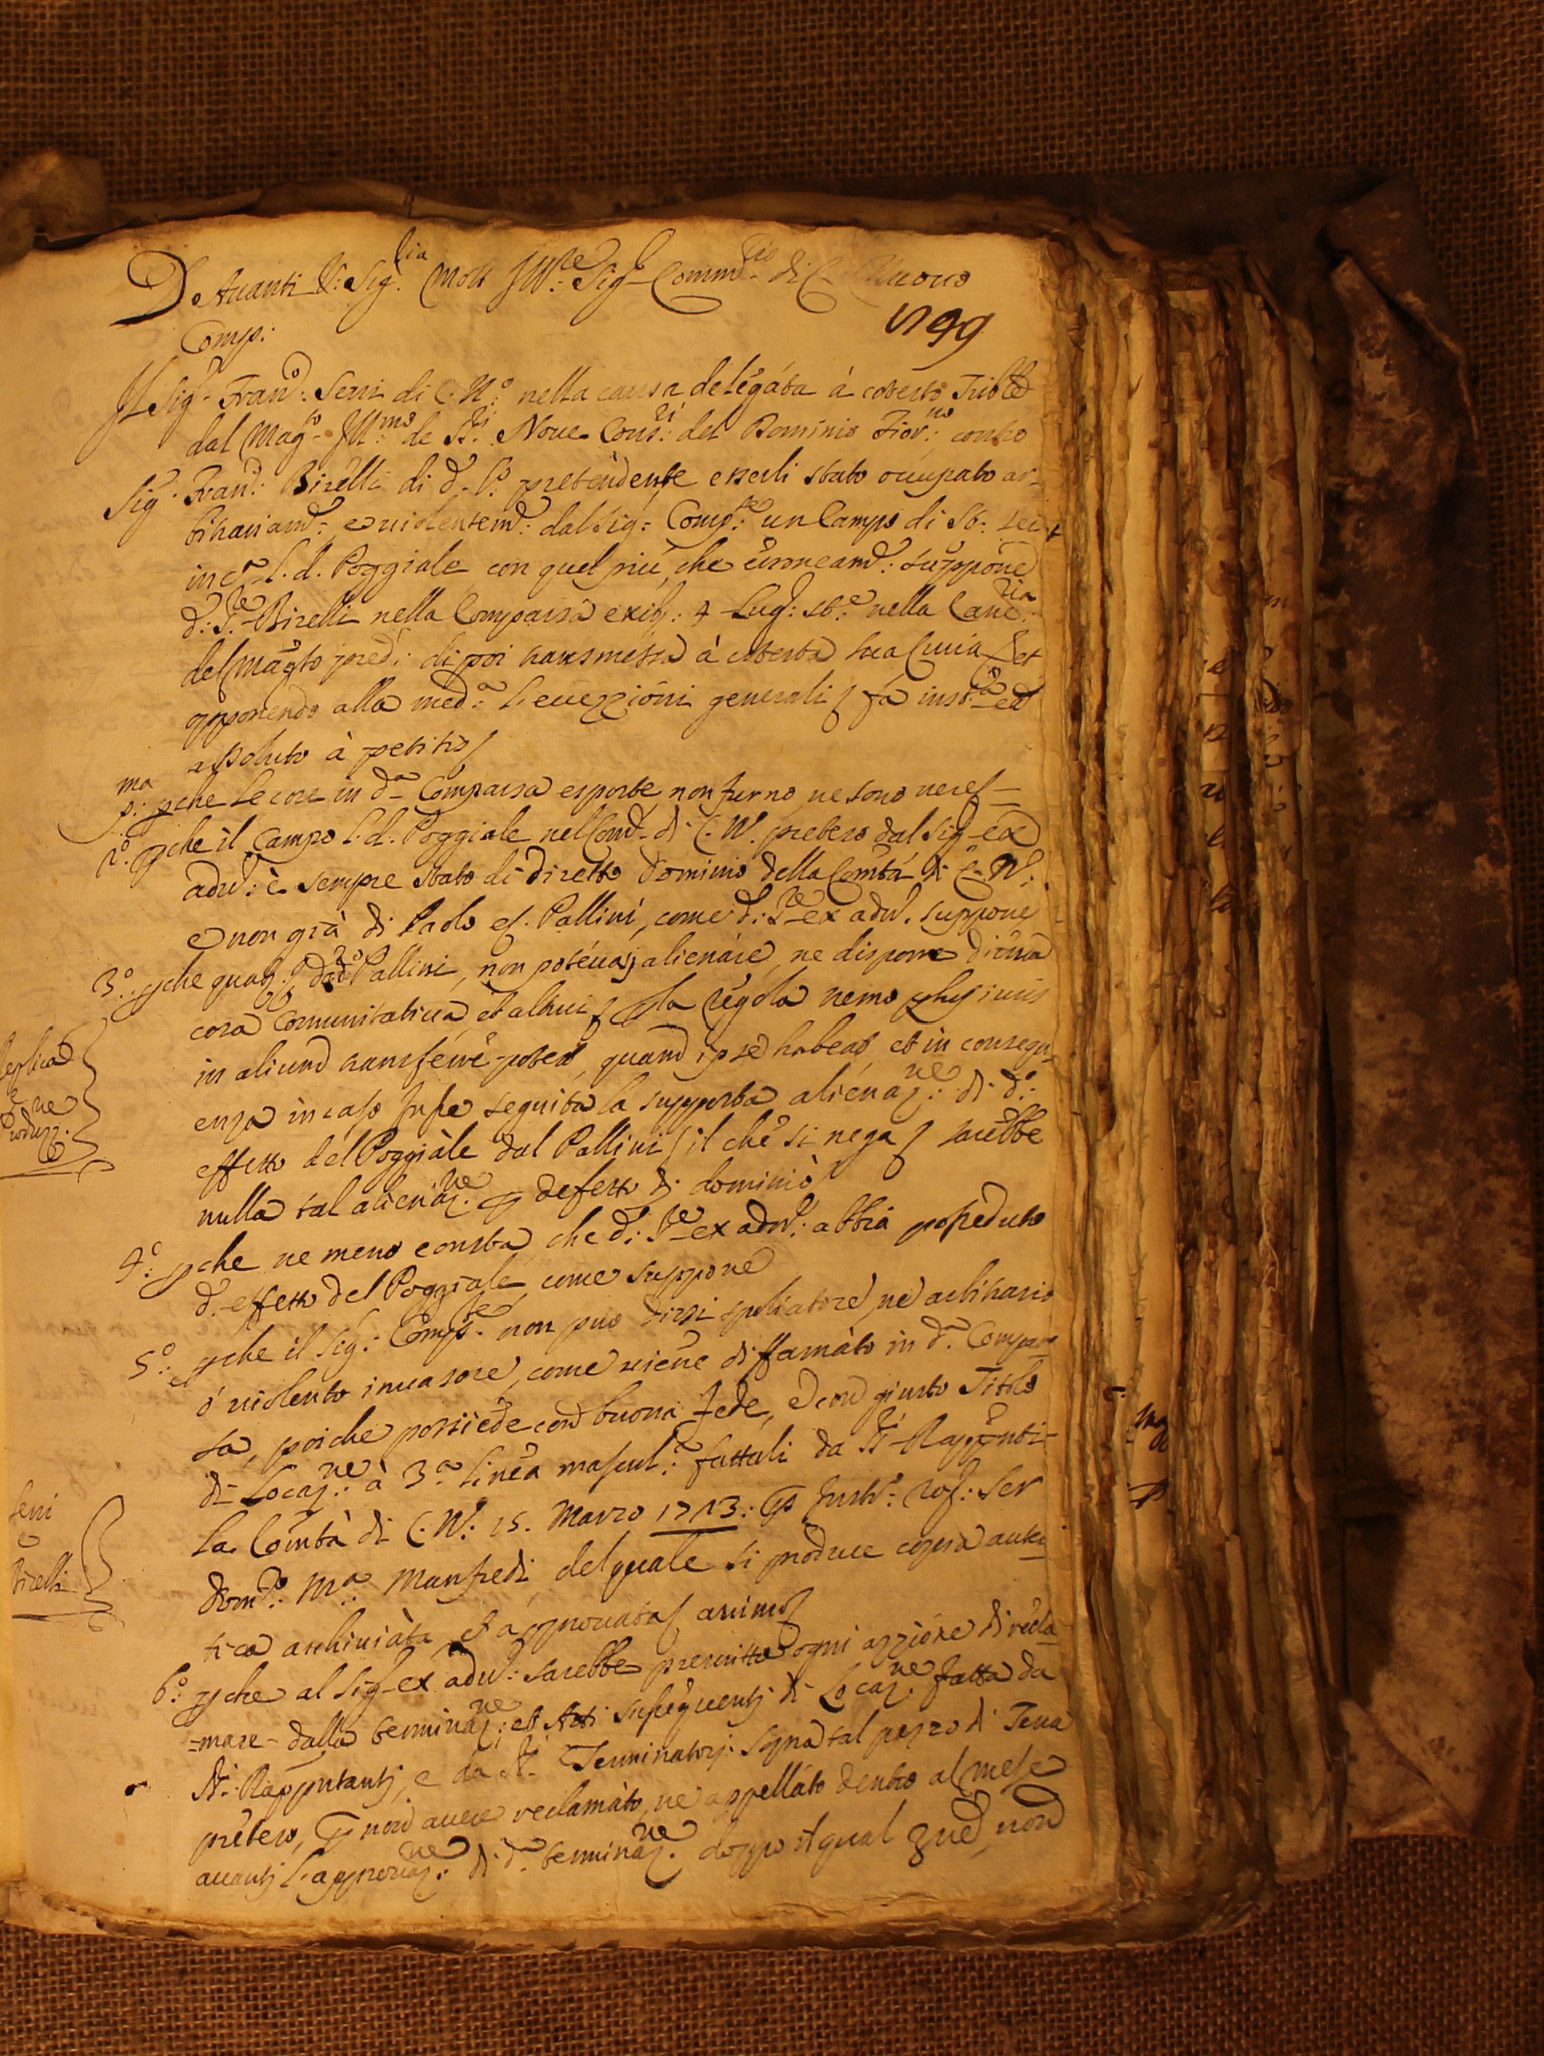 Avanti V: Sig.ria Molt Ill.re Sig.r Comm.rio di C. Nuovo
1799
Comp:
Il Sig.r Fran.o: Serri di C. N.o nella causa delegata à cotesto Trib.le
dal Mag.to Ill.mo de SS.ri Nove Cons.ri del Dominio Fior.no contro
Sig.r Fran.o: Birelli di d.o l.o pretendente esserli stato occupato ar-
bitrariam.e: e violentem.e: dal Sig.r Comp.te un Campo di st: sei
in c.a l. d. Poggiale con quel più, che erroneam.e: suppone
d.o: S.re Birelli nella Comparsa exib.: 4 Lug: st.e nella Canc.ria
del Mag.to pred.o: di poi transmessa à cotesta sua Curia et
opponendo alla med.a l'eccezzioni generali fà inst.a ed
assoluto à petitis
p.ma: p che le cose in d.a Comparsa esposte non furno, ne sono vere
2.o: p che il Campo l. d. Poggiale nel Com.e di C. N. preteso dal Sig.r ex
adv.o: è sempre stato di diretto Dominio della Com.tà di C. N.:
e non già di Paolo Pallini, come d.o: S.re ex adv.o suppone
3.o: p che d.o Pallini, non potevasi alienare, ne disporre di una
cosa Comunitativa, et altrui p la regola nemo plus iuris
in alium transferre potest, quam ipse habeat, et in consegu-
enza in caso fusse seguita la supposta alienaz.ne: di d.o:
effetto del Poggiale dal Pallini il che si nega sarebbe
nulla tal alienaz.ne p defetto di dominio
4.o: p che ne meno consta, che d.o: S.re ex adv.o: abbia posseduto
d.o effetto del Poggiale, come suppone
5.o: p che il Sig.r: Comp.te non può dirsi spoliatore, ne arbitrario
ò violento invasore, come viene diffamato in d.a Compar-
sa, poiche possiede con buona fede, e con giusto Titolo
di Locaz.ne: à 3.a linea mascul.a fattali da SS.ri Rapp.nti
la Com.tà di C. N.: 15. Marzo 1713: p Instr.o: rog.: Ser
Dom.co: M.a: Manfredi, del quale si produce copia auten-
tica archiviata, et animo
6.o: p che al Sig.r ex adv.o: sarebbe ogni azzione di recla-
mare dalla terminaz.ne: et Atti susseguenti di Locaz.ne fatta da
SS.ri Rapp.ntanti, e da SS.ri Terminatori: sopra tal pezzo di Terra
preteso, p non avere reclamato, ne appellato dentro al mese
avanti l'approvaz.ne: di d.a terminaz.ne doppo il qual non
Replica
e
Produz.ne
Serri
e
Birelli